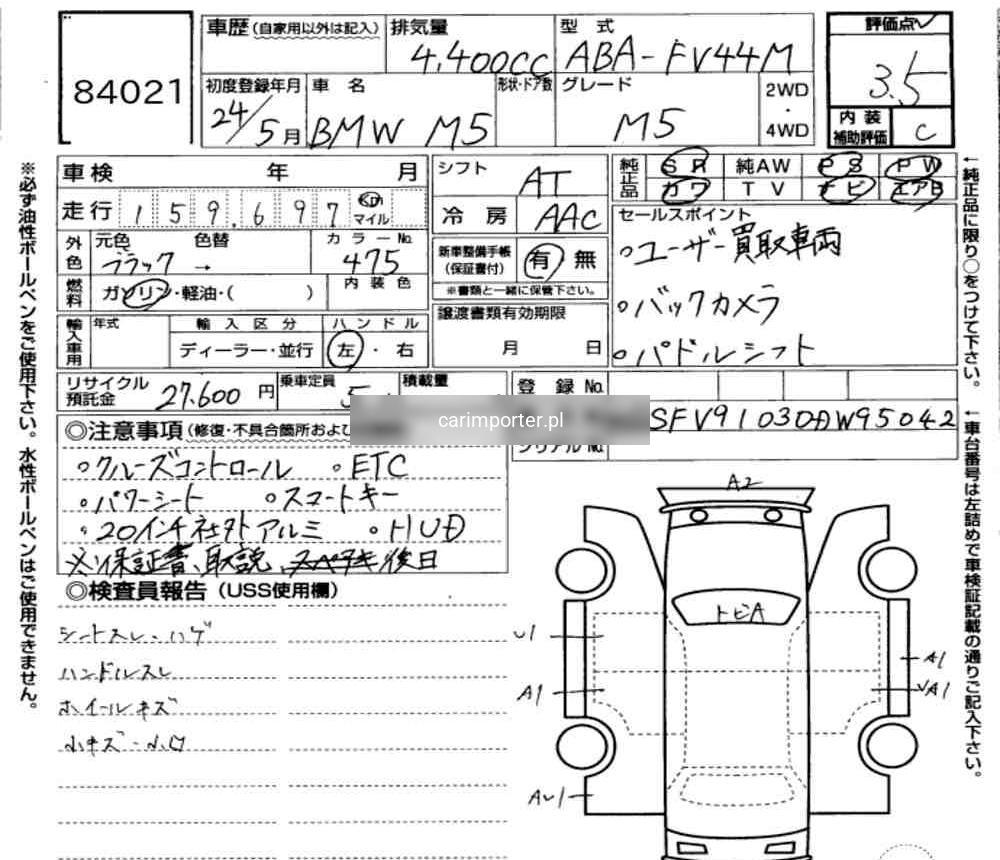 84021
車歴 (自家用以外は記入)
排気量
4,400cc
型式
ABA-FV44M
評価点
3.5
初度登録年月
24/5月
車名
BMW M5
形状・ドア数
グレード
M5
2WD
・
4WD
内装
補助評価
C
車検 年 月
走行 159,697 km
マイル
シフト
AT
冷房
AAC
純正品
SR 純AW PS PW
カワ TV ナビ エアB
外色
元色 色替
ブラック →
カラーNo.
475
燃料
ガソリン・軽油・( )
内装色
新車整備手帳
(保証書付)
有 無
※書類と一緒に保管下さい。
セールスポイント
○ユーザー買取車両
○バックカメラ
○パドルシフト
輸入車用
年式
輸入区分
ディーラー・並行
ハンドル
左・右
譲渡書類有効期限
月 日
リサイクル
預託金
27,600円
乗車定員
5
積載量
登録No.
carimporter.pl
SFV91030DW95042
シリアルNo.
◎注意事項(修復・不具合箇所および
○クルーズコントロール ○ETC
○パワーシート ○スマートキー
○20インチ社外アルミ ○HUD
※保証書、取説、スペアキー後日
◎検査員報告(USS使用欄)
シートスレ・ハゲ
ハンドルスレ
ホイールキズ
小キズ・小凹
A2
トビA
U1
A1
A1
A1
※必ず油性ボールペンをご使用下さい。水性ボールペンはご使用できません。
←純正品に限り○をつけて下さい。
←車台番号は左詰めで車検証記載の通りご記入下さい。